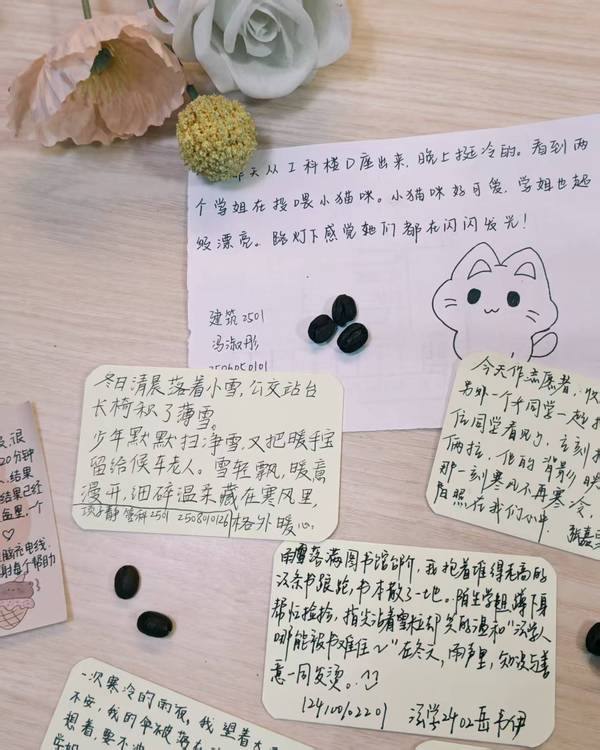 昨天从工科楼D座出来,晚上挺冷的。看到两
个学姐在投喂小猫咪。小猫咪好可爱,学姐也超
级漂亮。路灯下感觉她们都在闪闪发光!
建筑2501
冯淑彤
冬日清晨落着小雪,公交站台
长椅积了薄雪。
少年默默扫净雪,又把暖手宝
留给候车老人。雪轻飘,暖意
漫开,细碎温柔藏在寒风里,
静 管科2501 2508010126 格外暖心。
今天作志愿者,收
另外一个个同学一起
位同学看见了,立刻
俩拉,他的背影
那一刻寒风不再寒冷,
阳照在我们心中
很
20分钟
结果
结果已经
盒里,一个
脑充电线
谢每个帮助
雨雪落满图书馆台阶,我抱着堆得老高的
法条书踉跄,书本散了一地。陌生学姐蹲下身
帮忙捡拾,指尖沾着雪粒却笑的温和“法学人
哪能被书难住~”在冬天,雨声里,知识与善
意一同发烫。
124100102201 法学2402岳
一次寒冷的雨夜,我望着大
不安,我的伞被
想着,要不
学姐